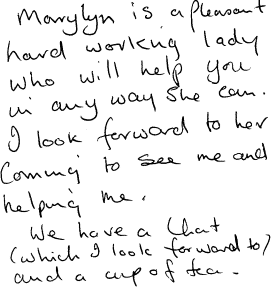 Marylyn is a pleasant
hard working lady
who will help you
in any way she can.
I look forward to her
Coming to see me and
helping me.
We have a Chat
(which I look forward to)
and a cup of tea.